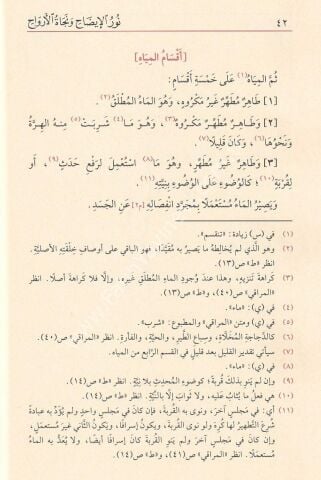 ٤٢ نُورُ الإِيضَاحِ وَنَجَاةُ الأَرْوَاحِ
[أَقْسَامُ المِيَاهِ]
ثُمَّ المِيَاهُ(١) عَلَى خَمْسَةِ أَقْسَامٍ:
[١] طَاهِرٌ مُطَهِّرٌ غَيْرُ مَكْرُوهٍ، وَهُوَ المَاءُ المُطْلَقُ(٢).
[٢] وَطَاهِرٌ مُطَهِّرٌ مَكْرُوهٌ(٣)، وَهُوَ مَا(٤) شَرِبَتْ(٥) مِنْهُ الهِرَّةُ
وَنَحْوُهَا(٦)، وَكَانَ قَلِيلًا(٧).
[٣] وَطَاهِرٌ غَيْرُ مُطَهِّرٍ، وَهُوَ مَا(٨) اسْتُعْمِلَ لِرَفْعِ حَدَثٍ(٩)، أَو
لِقُرْبَةٍ(١٠)؛ كَالوُضُوءِ عَلَى الوُضُوءِ بِنِيَّتِهِ(١١).
وَيَصِيرُ المَاءُ مُسْتَعْمَلًا بِمُجَرَّدِ انْفِصَالِهِ [٢/ب] عَنِ الجَسَدِ.
(١) في (س) زيادة: «تنقسم».
(٢) وهو الَّذي لم يُخالِطْهُ ما يَصيرُ به مُقيَّدًا، فهو الباقي على أوصافِ خِلْقَتِهِ الأصليَّة.
انظر «ط» ص(١٣).
(٣) كراهةَ تَنزيهٍ، وهذا عندَ وُجودِ الماءِ المُطلَقِ غيرِه، وإلَّا فلا كراهةَ أصلًا. انظر
«المراقي» ص(٤٠)، و«ط» ص(١٣).
(٤) في (ي): «ماء».
(٥) في (ي) ومتن «المراقي» والمطبوع: «شرب».
(٦) كالدَّجاجةِ المُخلَّاةِ، وسِباعِ الطَّيرِ، والحيَّةِ، والفأرةِ. انظر «المراقي» ص(٤٠).
(٧) سيأتي تقديرُ القليلِ بعد قليلٍ في القسمِ الرَّابعِ من المياه.
(٨) في (ي): «ماء».
(٩) وإن لم ينوِ بذلك قُربةً؛ كوضوءِ المُحدِثِ بلا نيَّةٍ. انظر «ط» ص(١٤).
(١٠) هي فعلُ ما يُثابُ عليه، ولا ثوابَ إلَّا بالنيَّة. انظر «ط» ص(١٤).
(١١) أي: في مَجلسٍ آخرَ، ونوى به القُربةَ، فإن كانَ في مجلسٍ واحدٍ ولم يُؤَدَّ به عبادةٌ
شُرِعَ التَّطهيرُ لها كُرِهَ ولو نوى به القُربةَ، ويكونُ إسرافًا، ويكونُ الثَّاني غيرَ مُستعمَلٍ.
وإن كانَ في مجلسٍ آخرَ ولم ينوِ القُربةَ كانَ إسرافًا أيضًا، ولا يُعَدُّ به الماءُ
مُستعملًا. انظر «المراقي» ص(٤١)، و«ط» ص(١٤).